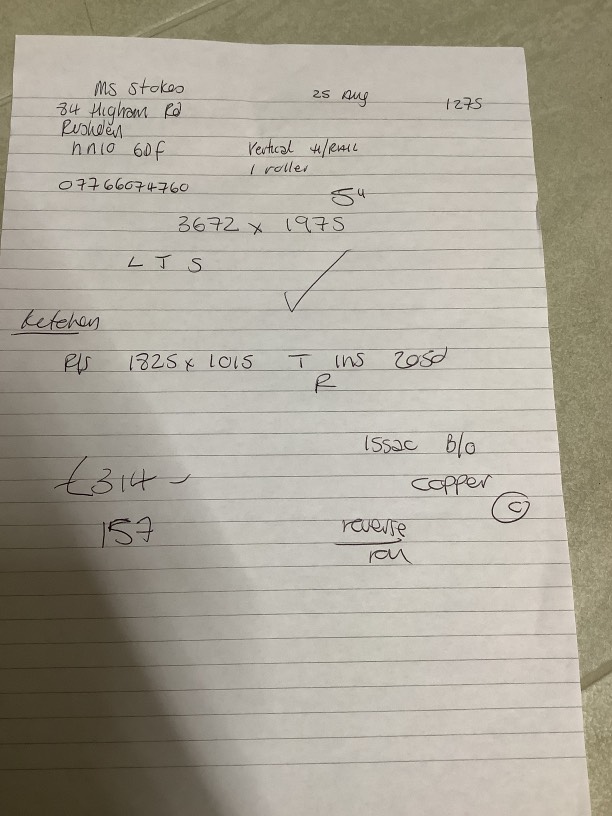 Ms Stokes 25 Aug 1275
84 Higham Rd
Rushden
NN10 6DF Vertical H/RAIL
1 roller
07766074760 5"
3672 x 1975
L T S
Ketchen
R/S 1825 x 1015 T ins 205d
R
Issac B/o
£314 - copper
C
157 reverse
roll